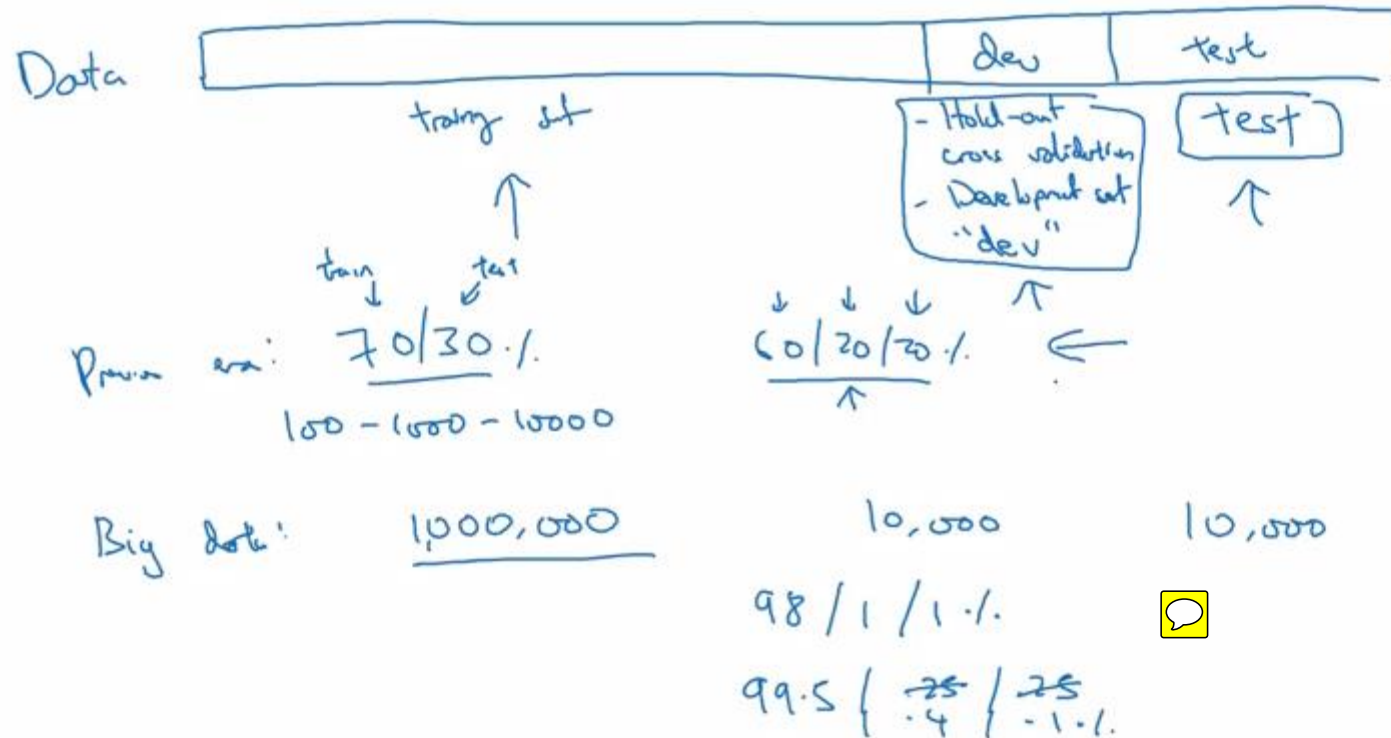 Data dev test
training set
- Hold-out cross validation
- Development set "dev"
test
train test
Previous era: 70/30 % 60/20/20 %
100 - 1000 - 10000
Big data: 1,000,000 10,000 10,000
98 / 1 / 1 %
99.5 / 25 / 25
.4 / .1 %